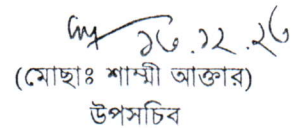 ১৬.১২.২৬
(মোছাঃ শাম্মী আক্তার)
উপসচিব